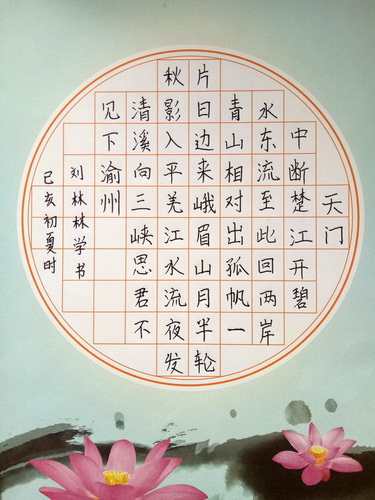 天门
中断楚江开碧
水东流至此回两岸
青山相对出孤帆一
片日边来峨眉山月半轮
秋影入平羌江水流夜发
清溪向三峡思君不
见下渝州
刘林林学书
己亥初夏时